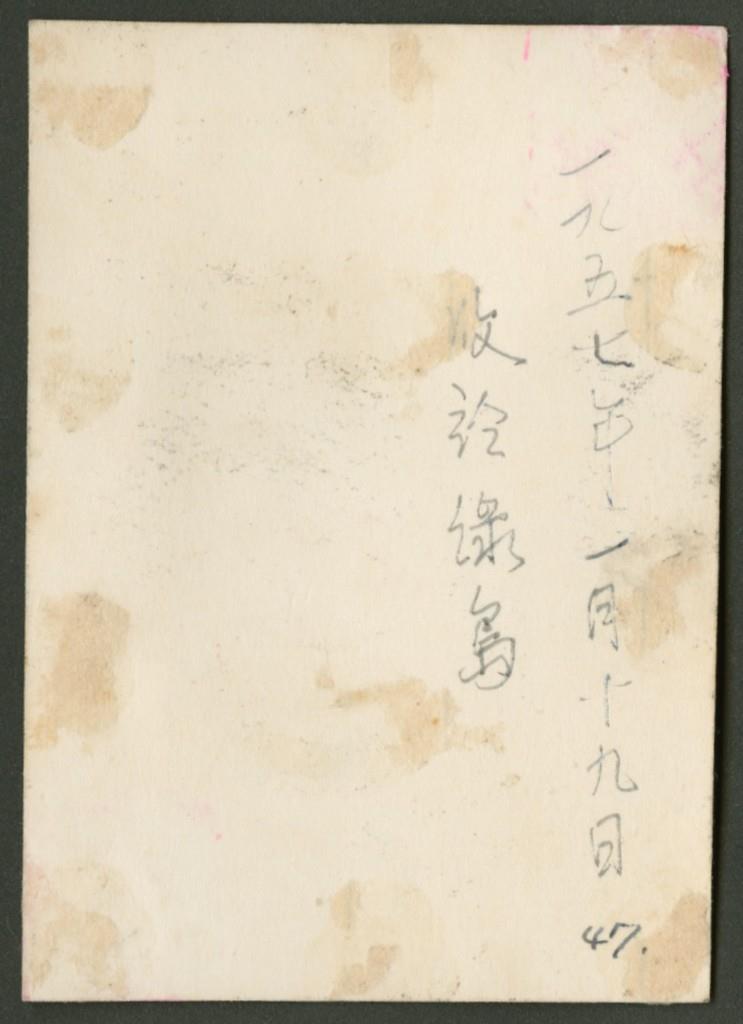 一九五七年一月十九日 47.
收於綠島